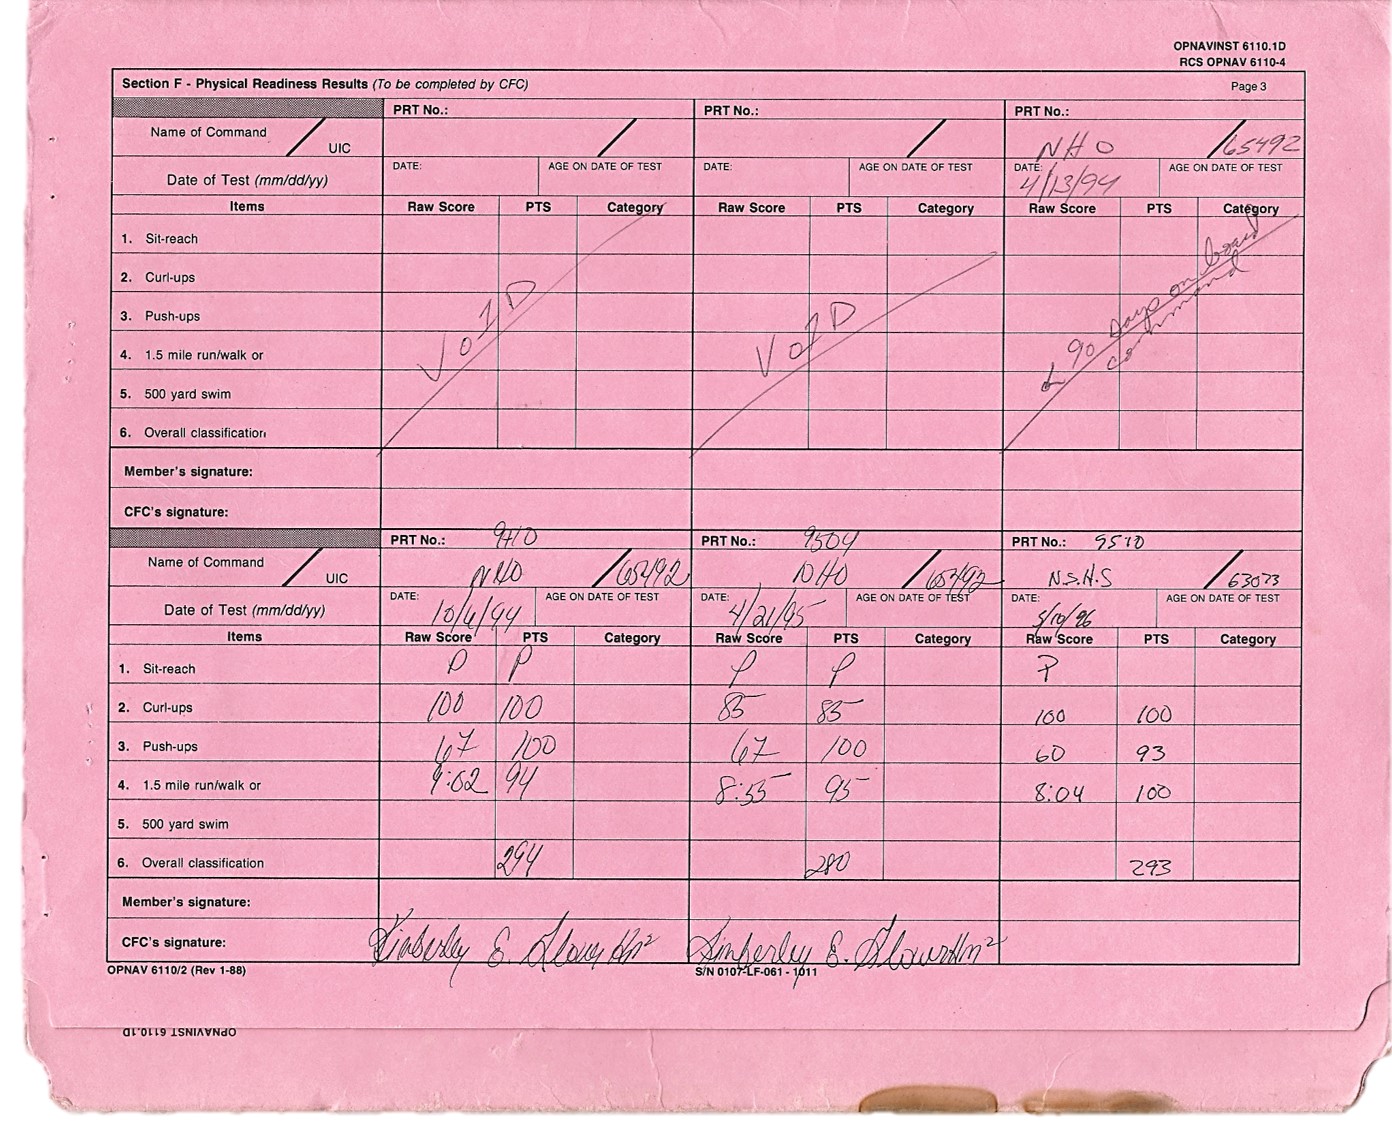 OPNAVINST 6110.1D
RCS OPNAV 6110-4
Section F - Physical Readiness Results (To be completed by CFC)
Page 3
PRT No.: PRT No.: PRT No.:
Name of Command / UIC / / NHO / 65492
Date of Test (mm/dd/yy) DATE: AGE ON DATE OF TEST DATE: AGE ON DATE OF TEST DATE: 4/13/94 AGE ON DATE OF TEST
Items Raw Score PTS Category Raw Score PTS Category Raw Score PTS Category
1. Sit-reach
2. Curl-ups
3. Push-ups
4. 1.5 mile run/walk or
5. 500 yard swim
6. Overall classification
VOID
VOID
90 days on board
command
Member's signature:
CFC's signature:
PRT No.: 9410 PRT No.: 9504 PRT No.: 9510
Name of Command / UIC NHO / 65492 NHO / 65492 N.S.H.S / 63073
Date of Test (mm/dd/yy) DATE: 10/6/94 AGE ON DATE OF TEST DATE: 4/21/95 AGE ON DATE OF TEST DATE: 5/10/96 AGE ON DATE OF TEST
Items Raw Score PTS Category Raw Score PTS Category Raw Score PTS Category
1. Sit-reach P P P P P
2. Curl-ups 100 100 85 85 100 100
3. Push-ups 67 100 67 100 60 93
4. 1.5 mile run/walk or 9:02 94 8:55 95 8:04 100
5. 500 yard swim
6. Overall classification 294 280 293
Member's signature:
CFC's signature: Kimberley E. HM2 Kimberley E. HM2
OPNAV 6110/2 (Rev 1-88)
S/N 0107-LF-061-1011
OPNAVINST 6110.1D